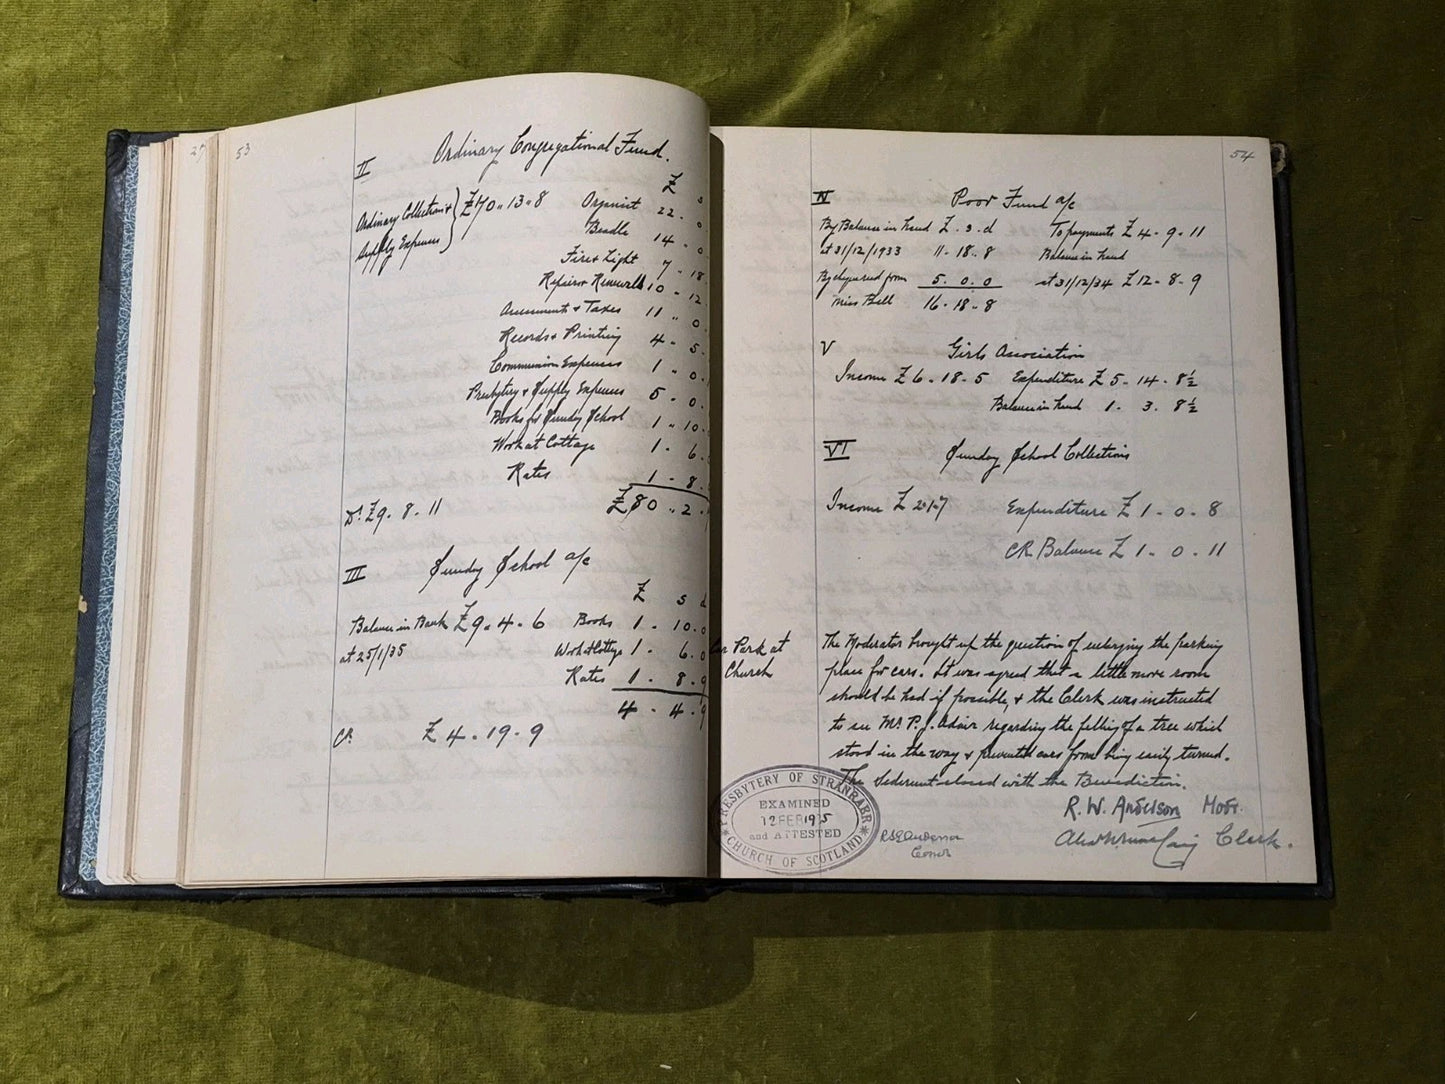 27
53
II Ordinary Congregational Fund.
£ s
Ordinary Collection & Supply Expenses } £70 " 13 " 8
Organist 22 - 0
Beadle 14 - 0
Fire & Light 7 - 18
Repairs & Renewals 10 - 12
Assessments & Taxes 11 " 0
Records & Printing 4 - 5
Communion Expenses 1 " 0
Presbytery & Supply Expenses 5 - 0
Books for Sunday School 1 " 10
Work at Cottage 1 - 6
Rates 1 - 8
Dr £9 - 8 - 11 £80 " 2
III Sunday School a/c
£ s d
Balance in Bank £9 - 4 - 6 Books 1 - 10 - 0
at 25/1/35 Work at Cottage 1 - 6 - 0
Rates 1 - 8 - 9
4 - 4 - 9
Cr £4 - 19 - 9
54
IV Poor Fund a/c
By Balance in hand £ . s . d To payments £4 - 9 - 11
at 31/12/1933 11 - 18 - 8 Balance in hand
By cheque recd from 5 . 0 . 0 at 31/12/34 £12 - 8 - 9
Miss Bell 16 - 18 - 8
V Girls Association
Income £6 - 18 - 5 Expenditure £5 - 14 - 8½
Balance in hand 1 . 3 . 8½
VI Sunday School Collections
Income £2-1-7 Expenditure £1 - 0 - 8
CR. Balance £1 - 0 - 11
Car Park at
Church
The Moderator brought up the question of enlarging the parking
place for cars. It was agreed that a little more room
should be had if possible, & the Clerk was instructed
to see Mr. P. J. Adair regarding the felling of a tree which
stood in the way & prevented cars from being easily turned.
The Sederunt closed with the Benediction.
R. W. Anderson Modr.
Clerk.
PRESBYTERY OF STRANRAER
EXAMINED
12 FEB 1935
and ATTESTED
CHURCH OF SCOTLAND
Anderson